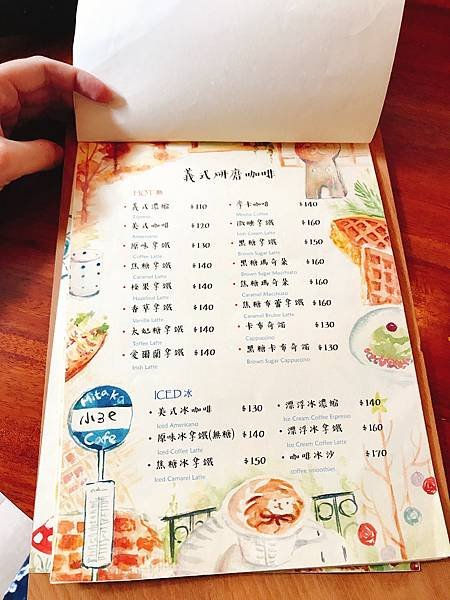 義式研磨咖啡
HOT 熱
• 義式濃縮 $110
Espresso
• 美式咖啡 $120
Americano
• 原味拿鐵 $130
Coffee Latte
• 焦糖拿鐵 $140
Caramel Latte
• 榛果拿鐵 $140
Hazelnut Latte
• 香草拿鐵 $140
Vanilla Latte
• 太妃糖拿鐵 $140
Toffee Latte
• 愛爾蘭拿鐵 $140
Irish Latte
• 摩卡咖啡 $140
Mocha Coffee
• 微糖拿鐵 $160
Latte
• 黑糖拿鐵 $150
Brown Sugar Latte
• 黑糖瑪奇朵 $160
Brown Sugar Macchiato
• 焦糖瑪奇朵 $160
Caramel Macchiato
• 焦糖布蕾拿鐵 $160
Caramel Brulee Latte
• 卡布奇諾 $130
Cappuccino
• 黑糖卡布奇諾 $140
Brown Sugar Cappuccino
ICED 冰
• 美式冰咖啡 $130
Iced Americano
• 原味冰拿鐵(無糖) $140
Iced Coffee Latte
• 焦糖冰拿鐵 $150
Iced Camarel Latte
• 漂浮冰濃縮 $140
Ice Cream Coffee Espresso
• 漂浮冰拿鐵 $160
Ice Cream Coffee Latte
• 咖啡冰沙 $170
coffee smoothies
Mitaka
小3e
Cafe